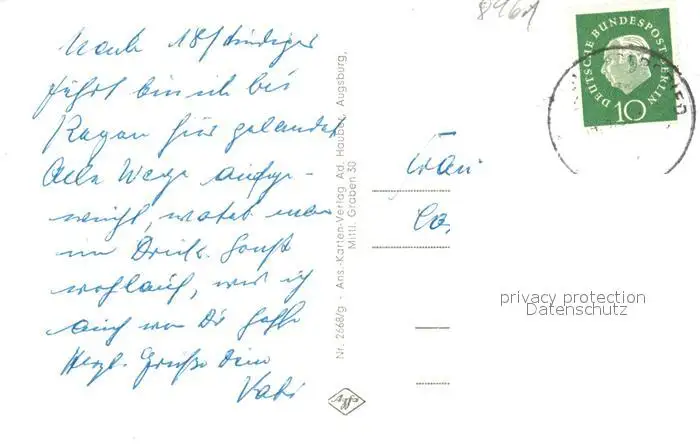 Nach 18stündiger
Fahrt bin ich bei
Regen hier gelandet
Alle Wege aufge-
weicht, watet man
im Dreck. Sonst
wohlauf, wie ich
auch von Dir hoffe
Herzl. Grüße Dein
Vati
Nr. 2668/g - Ans.-Karten-Verlag Ad. Hauber, Augsburg,
Mittl. Graben 30
Agfa
Frau
DEUTSCHE BUNDESPOST BERLIN
10
privacy protection
Datenschutz